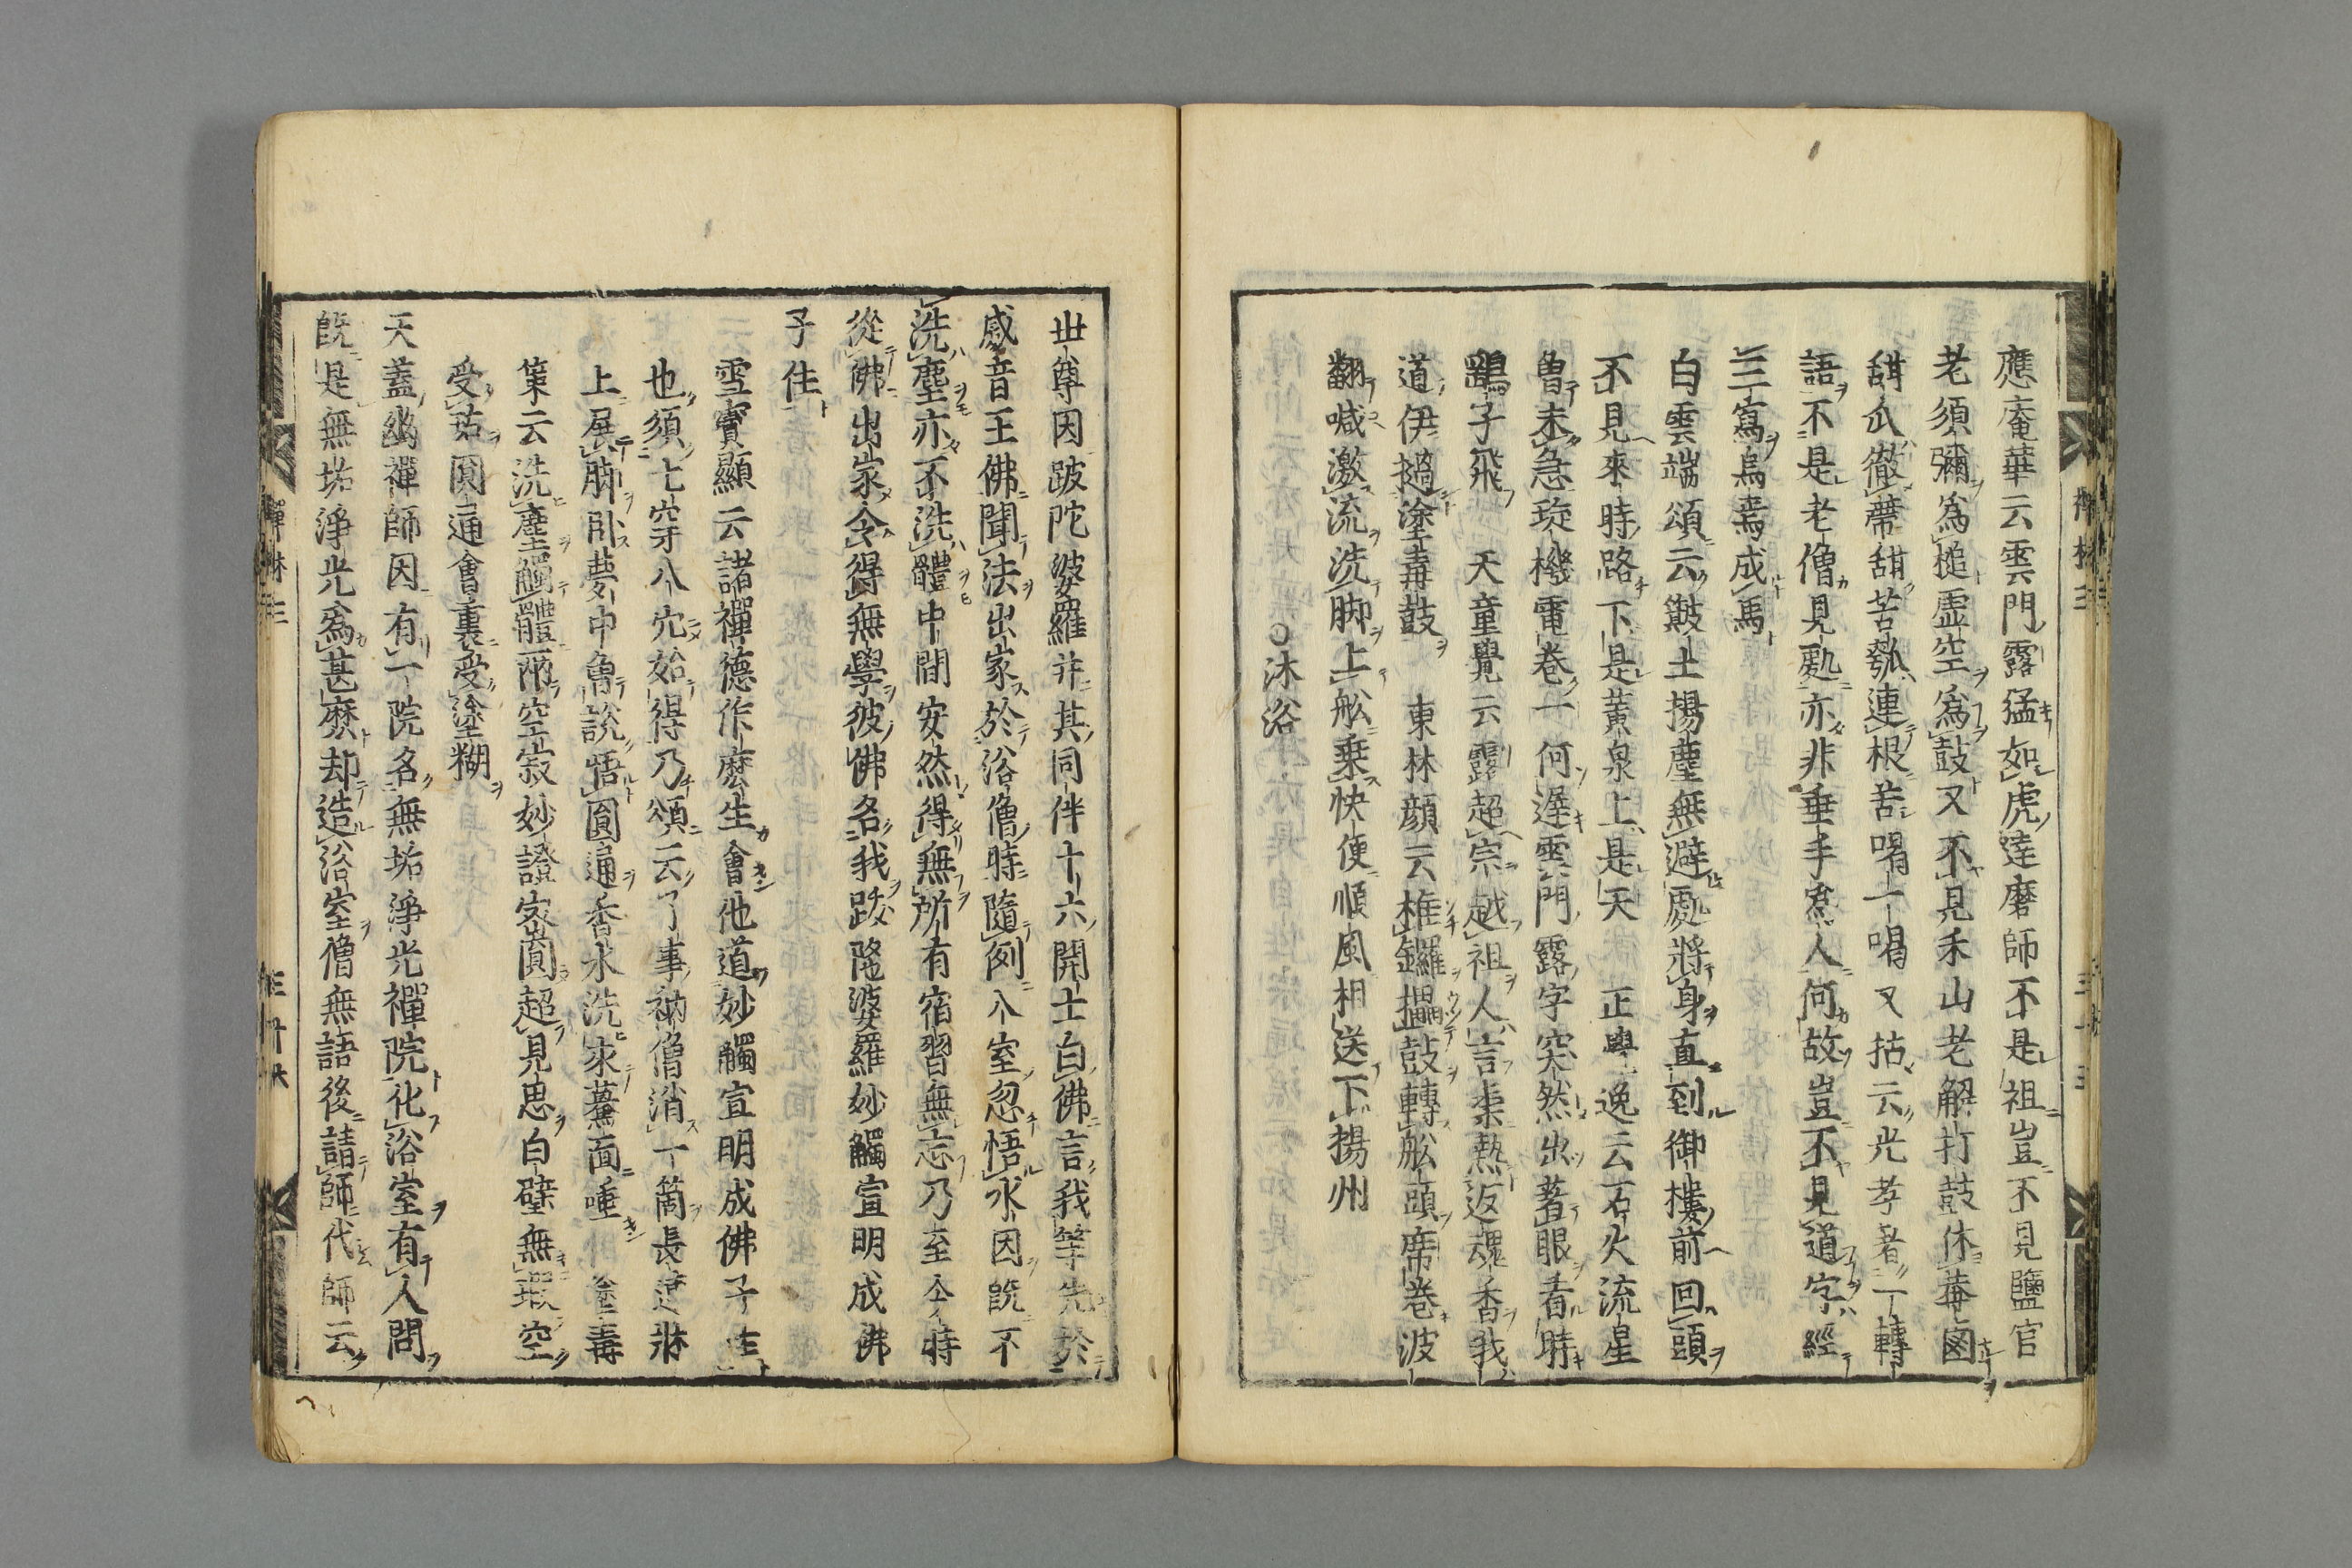 應庵華云雲門露猛如虎達磨師不是祖豈不見鹽官
老須彌爲槌虛空爲鼓又不見禾山老解打鼓休莽鹵
甜瓜徹蒂甜苦瓠連根苦喝一喝又拈云光孝者一轉
語不是老僧見處亦非垂手爲人何故豈不見道字經
三寫烏焉成馬
白雲端頌云獃土揚塵無避處將身直到御樓前回頭
不見來時路下是黃泉上是天 正輿逸云石火流星
魯未急琁機電卷一何遲雲門露字突然出著眼看時
鷂子飛 天童覺云露超宗越祖人言棗熱返魂香我
道伊撾塗毒鼓 東林顔云椎鑼擂鼓轉舩頭席卷波
翻喊激流洗脚上舩乗快便順風相送下揚州
○沐浴
世尊因跋陀婆羅并其同伴十六開士白佛言我等先於
威音王佛聞法出家於浴僧時隨例入室忽悟水因旣不
洗塵亦不洗體中間安然得無所有宿習無忘乃至今時
從佛出家令得無學彼佛名我跋陀婆羅妙觸宣明成佛
子住
雪竇顯云諸禪德作麽生會他道妙觸宣明成佛子住
也須七穿八穴始得乃頌云了事衲僧消一箇長連牀
上展脚卧夢中魯說悟圓通香水洗來驀面唾 塗毒
策云洗塵觸體兩空寂妙證家圓超見思白璧無瑕空
受玷圓通會裏受塗糊
天蓋幽禪師因有一院名無垢淨光禪院化浴室有人問
旣是無垢淨光爲甚麽却造浴室僧無語後請師代師云